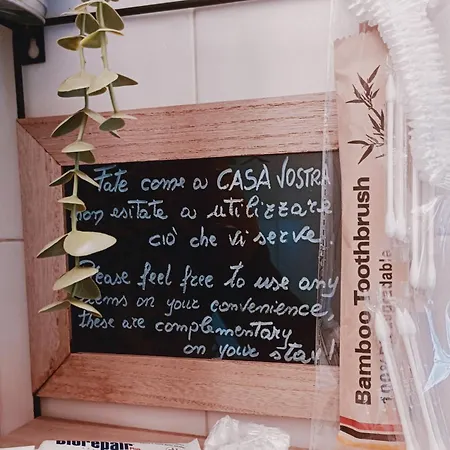 Fate come a CASA VOSTRA
non esitate a utilizzare
ciò che vi serve.
Please feel free to use any
items on your convenience,
these are complementary
on your stay!
Bamboo Toothbrush
100%
Biorepair